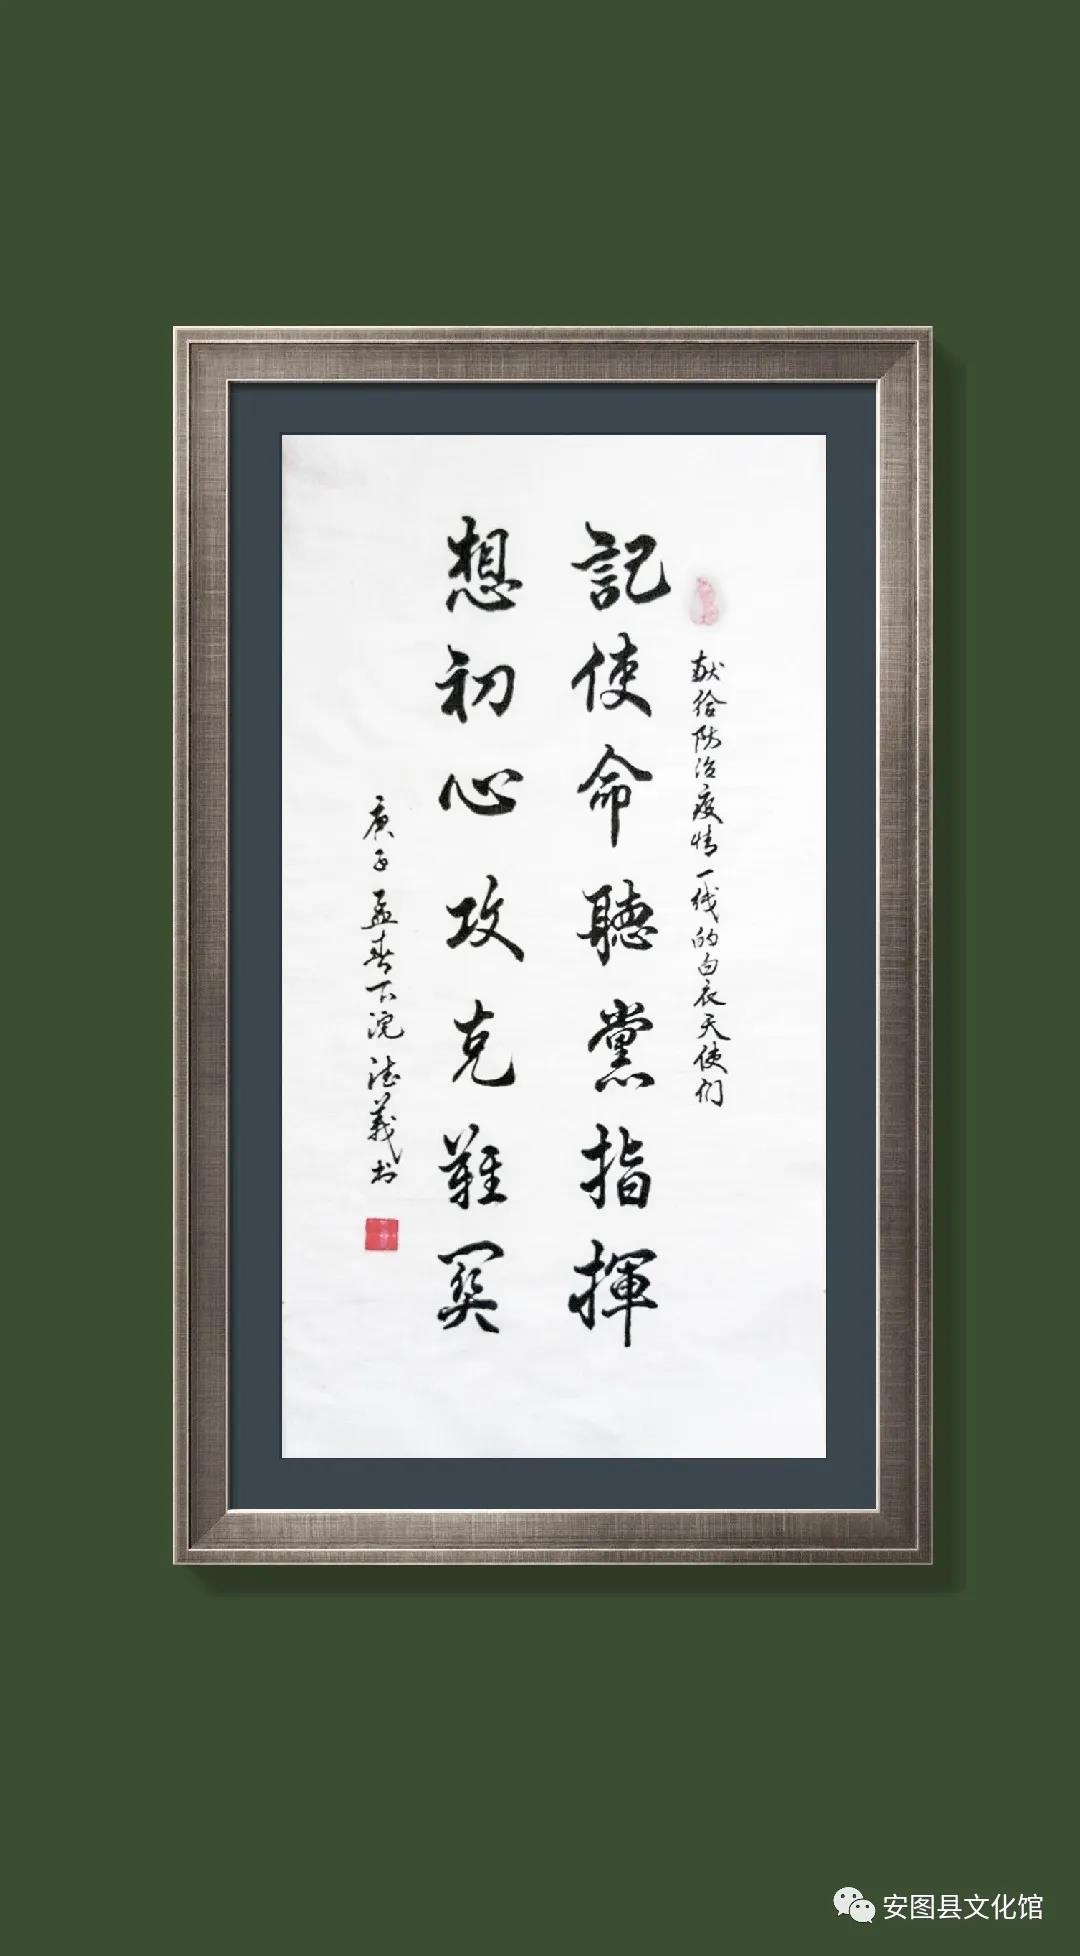 献给防治疫情一线的白衣天使们
記使命聽黨指揮
想初心攻克難関
庚子孟春下浣德義书
安图县文化馆